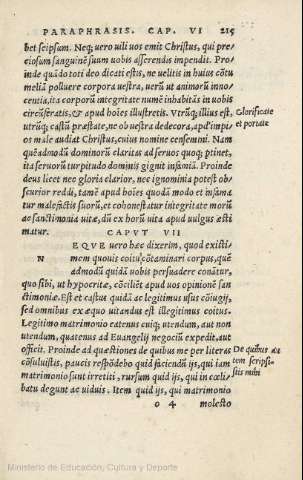 PARAPHRASIS. CAP. VI 215
bet seipsum. Neq; uero uili uos emit Christus, qui pre
ciosum sanguinē suum uobis asserendis impendit. Pro
inde quādo toti deo dicati estis, ne uelitis in huius cōtu
meliā polluere corpora uestra, uerū ut animorū inno-
centia, ita corporū integritate numē inhabitās in uobis
circūferatis, & apud hoīes illustretis. Vtrūq; illius est,
utrūq; castū præstate, ne ob uestra dedecora, apd' impi
os male audiat Christus, cuius nomine censemini. Nam
quēadmodū dominorū claritas ad seruos quoq; ptinet,
ita seruorū turpitudo dominis gignit infamiā. Proinde
deus licet nec gloria clarior, nec ignominia potest ob-
scurior reddi, tamē apud hoīes quodā modo et infama
tur malefactis suorū, et cohonestatur integritate morū
ac sanctimonia uitæ, dū ex horū uita apud uulgus æsti
matur. CAPVT VII
Glorificate
et portate
NEQVE uero hæc dixerim, quod existi
mem quouis coitu cōtaminari corpus, quē
admodū quidā uobis persuadere conātur,
quo sibi, ut hypocritæ, cōciliēt apud uos opinionē san
ctimoniæ. Est et castus quidā ac legitimus usus cōiugij,
sed omnibus ex æquo uitandus est illegitimus coitus.
Legitimo matrimonio eatenus cuiq; utendum, aut non
utendum, quatenus ad Euangelij negociū expedit, aut
officit. Proinde ad quæstiones de quibus me per literas
cōsuluistis, paucis respōdebo quid faciendū ijs, qui iam
matrimonio sunt irretiti, rursum quid ijs, qui in cœli-
batu degunt ac uiduis. Item quid ijs, qui matrimonio
De quibus au
tem scripsi-
stis mihi
o 4 molesto
Ministerio de Educación, Cultura y Deporte